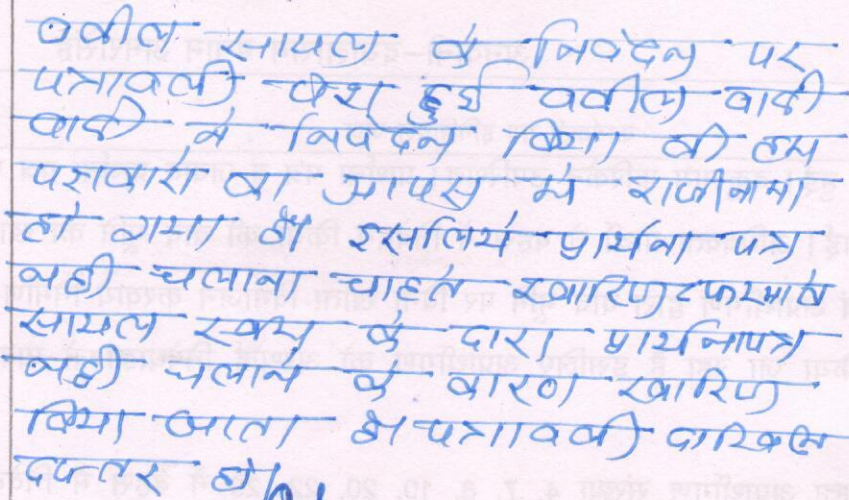 वकील सायल के निवेदन पर
पत्रावली पेश हुई वकील वादी
वादी ने निवेदन किया की हम
पक्षकारों का आपस में राजीनामा
हो गया है इसलिये प्रार्थना पत्र
नही चलाना चाहते खारिज फरमावे
सायल स्वयं के द्वारा प्रार्थनापत्र
नही चलाने के कारण खारिज
किया जाता है पत्रावली दाखिल
दफ्तर हो।